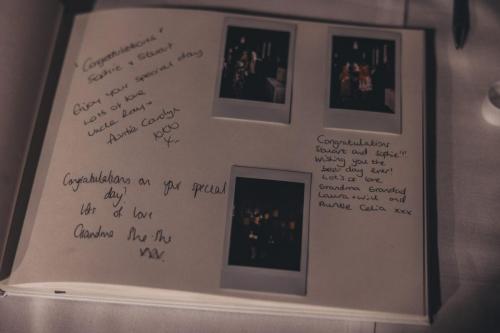 "Congratulations"
Sophie + Stuart
Enjoy your special day
Lots of love
Uncle
Auntie Carolyn
xoxo
Congratulations on your special
day!
lots of love
Grandma She-She
xxx.
Congratulations
Stuart and Sophie!!
Wishing you the
best day ever!
Lots of love
Grandma Grandad
Laura + Will and
Auntie Celia xxx